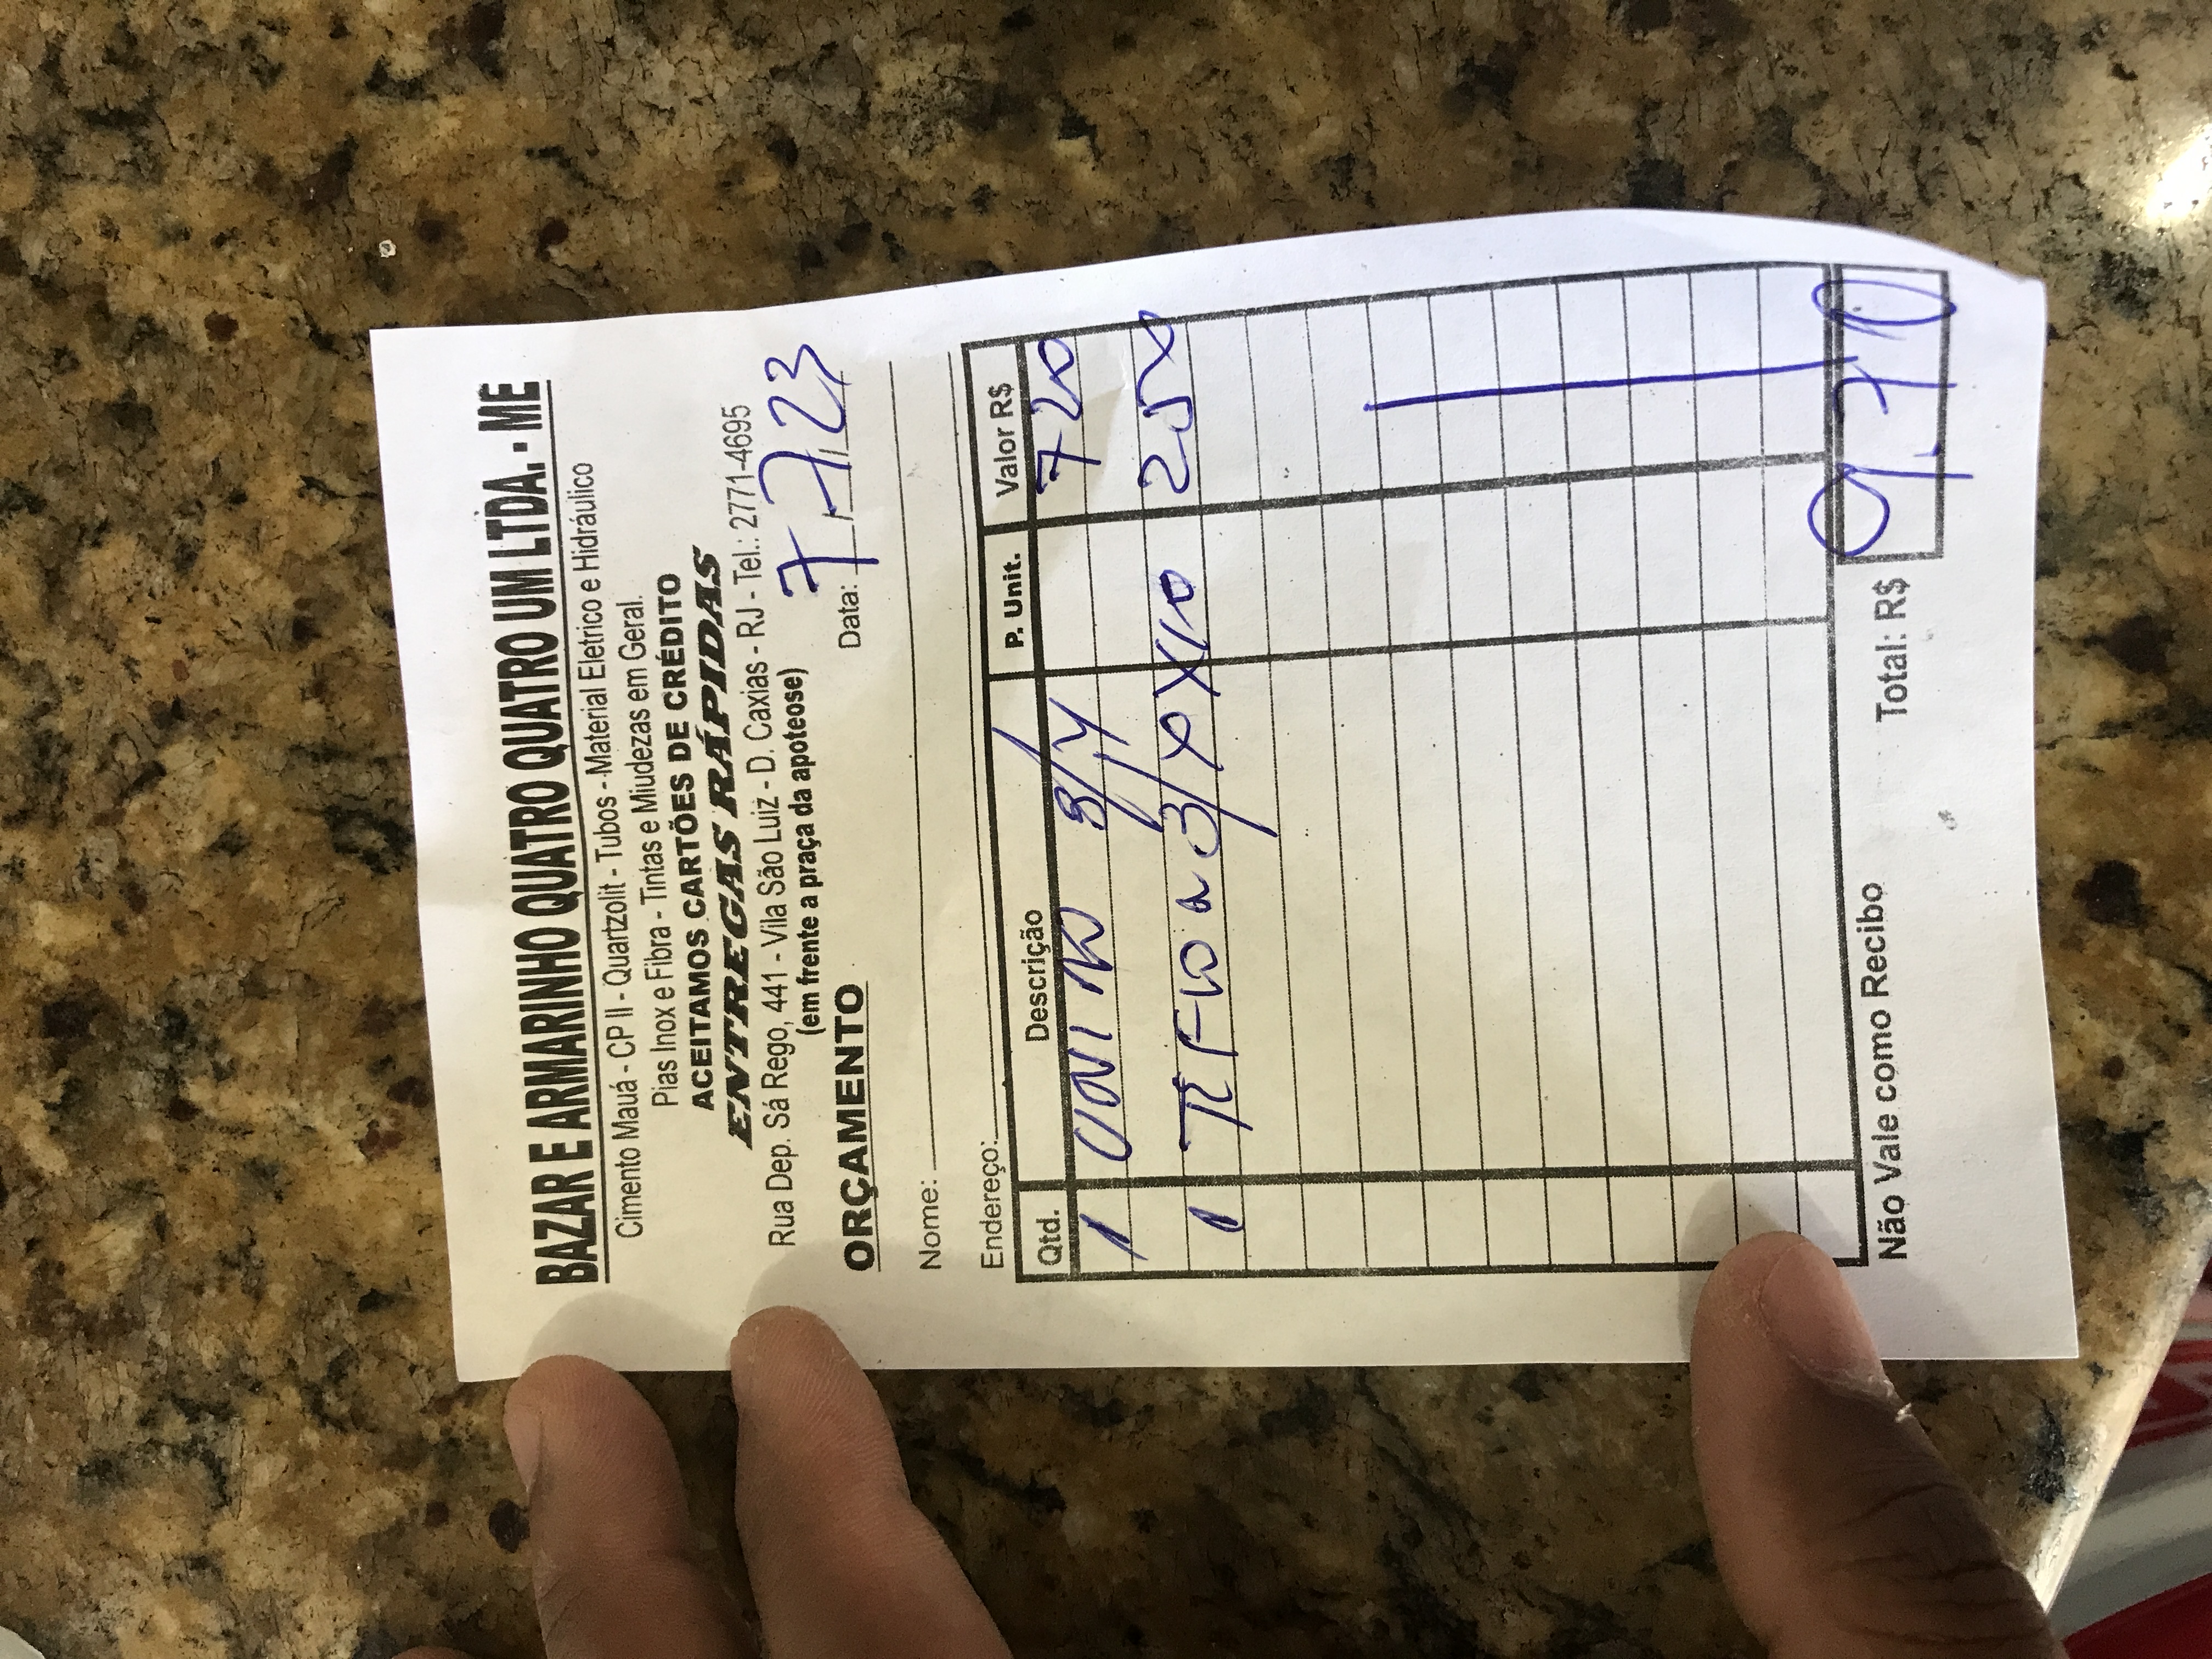 BAZAR E ARMARINHO QUATRO QUATRO UM LTDA. - ME
Cimento Mauá - CP II - Quartzolit - Tubos - Material Eletrico e Hidráulico
Pias Inox e Fibra - Tintas e Miudezas em Geral.
ACEITAMOS CARTÕES DE CRÉDITO
ENTREGAS RÁPIDAS
Rua Dep. Sá Rego, 441 - Vila São Luiz - D. Caxias - RJ - Tel.: 2771-4695
(em frente a praça da apoteose)
ORÇAMENTO Data: 7/7/23
Nome:
Endereço:
Qtd. Descrição P. Unit. Valor R$
1 3/4 720
1 TEFLON 3/4 X10 250
Não Vale como Recibo Total: R$ 9.70